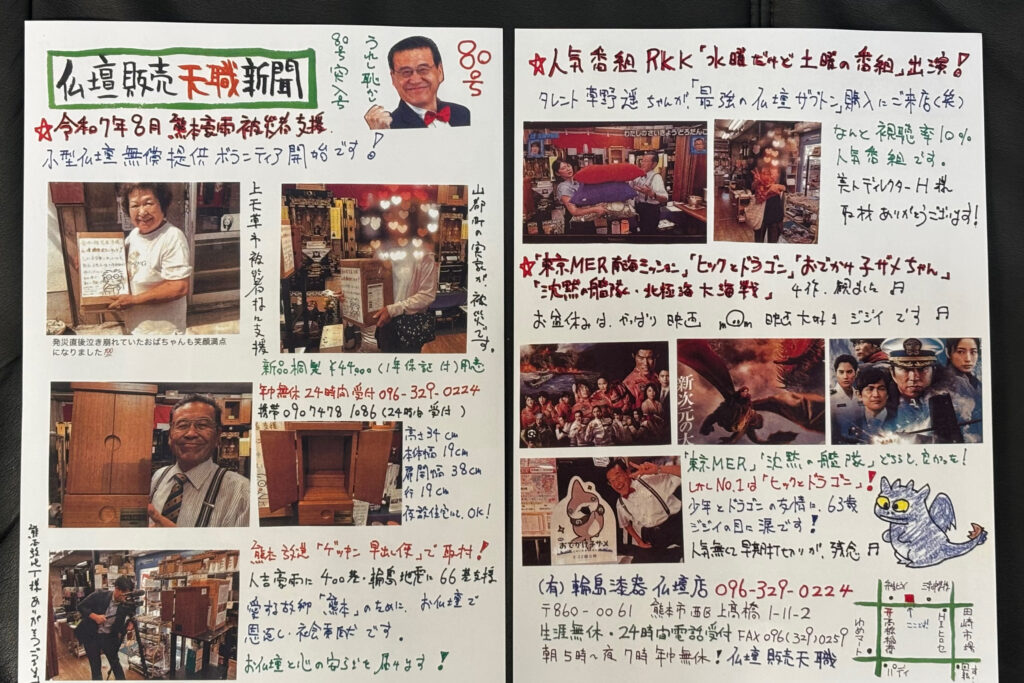 仏壇販売天職新聞
80号突入号
うれし恥かし
80号
☆令和7年8月熊本豪雨被災者支援
小型仏壇無償提供ボランティア開始です!
上天草市被災者様に支援
山都町の実家が被災です。
発災直後泣き崩れていたおばちゃんも笑顔満点
になりました💯
新品桐製¥44000(1年保証付)用意
年中無休24時間受付096-329-0224
携帯09074781086(24時間受付)
高さ34cm
本体幅19cm
扉開幅38cm
行19cm
仮設住宅にも、OK!
熊本放送「ゲツキン早出し便」で取材!
人吉豪雨に400基・輪島地震に66基支援
愛する故郷「熊本」のために、お仏壇で
恩返し・社会貢献です。
お仏壇と心の安らぎを届けます!
☆人気番組RKK「水曜だけど土曜の番組」出演!
タレント草野遥ちゃんが「最強の仏壇ザブトン」購入にご来店(笑)
わたしのさいきょうどろだんご
なんと視聴率10%
人気番組です。
美人ディレクターH様
取材ありがとうございます!
☆「東京MER南海ミッション」「ヒックとドラゴン」「おでかけ子ザメちゃん」
「沈黙の艦隊・北極海大海戦」4作、観ました
お盆休みは、やっぱり映画 映画大好きジジイです
新次元の大
おでかけ子ザメ
「東京MER」「沈黙の艦隊」どちらも、良かった!
しかしNo.1は「ヒックとドラゴン」!
少年とドラゴンの友情に、63歳
ジジイの目に涙です!
人気無くて早期打ち切りが、残念
(有)輪島漆器仏壇店 096-329-0224
〒860-0061 熊本市西区上高橋1-11-2
生涯無休・24時間電話受付 FAX096(329)0259
朝5時〜夜7時年中無休!仏壇販売天職
ここだよ!
ゆめマート
高橋稲荷
ヒロセ
田崎市場